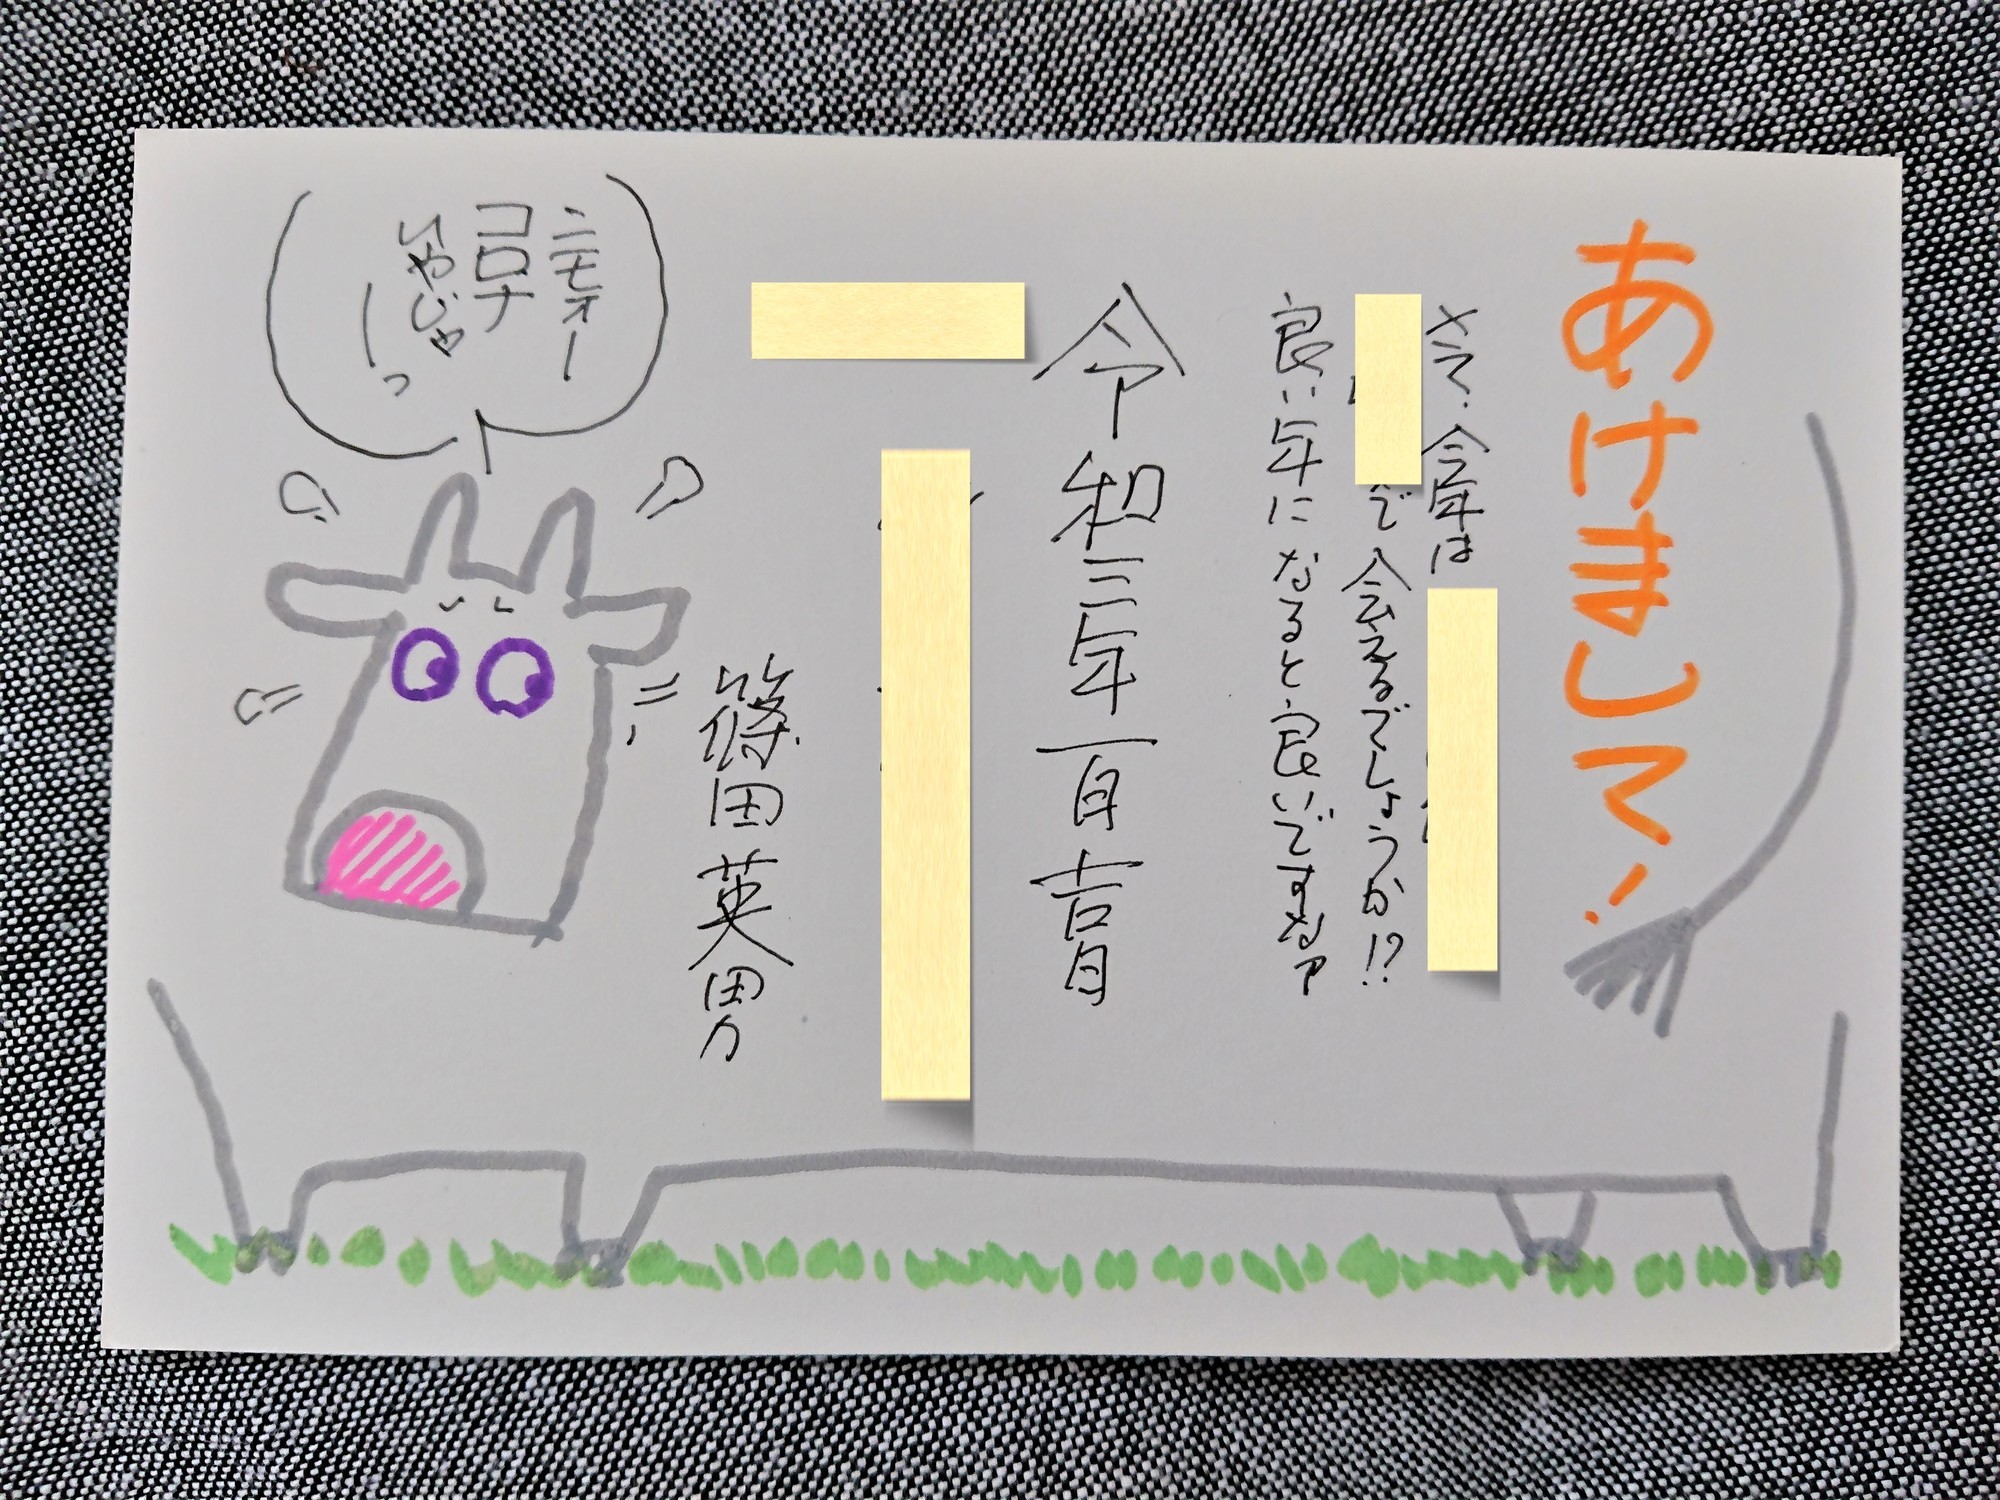 あけまして!
さて、今年は
で会えるでしょうか!?
良い年になると良いですなァ
令和三年一月吉日
篠田英男
ニモォー
コロナ
いやじゃ
ーっ